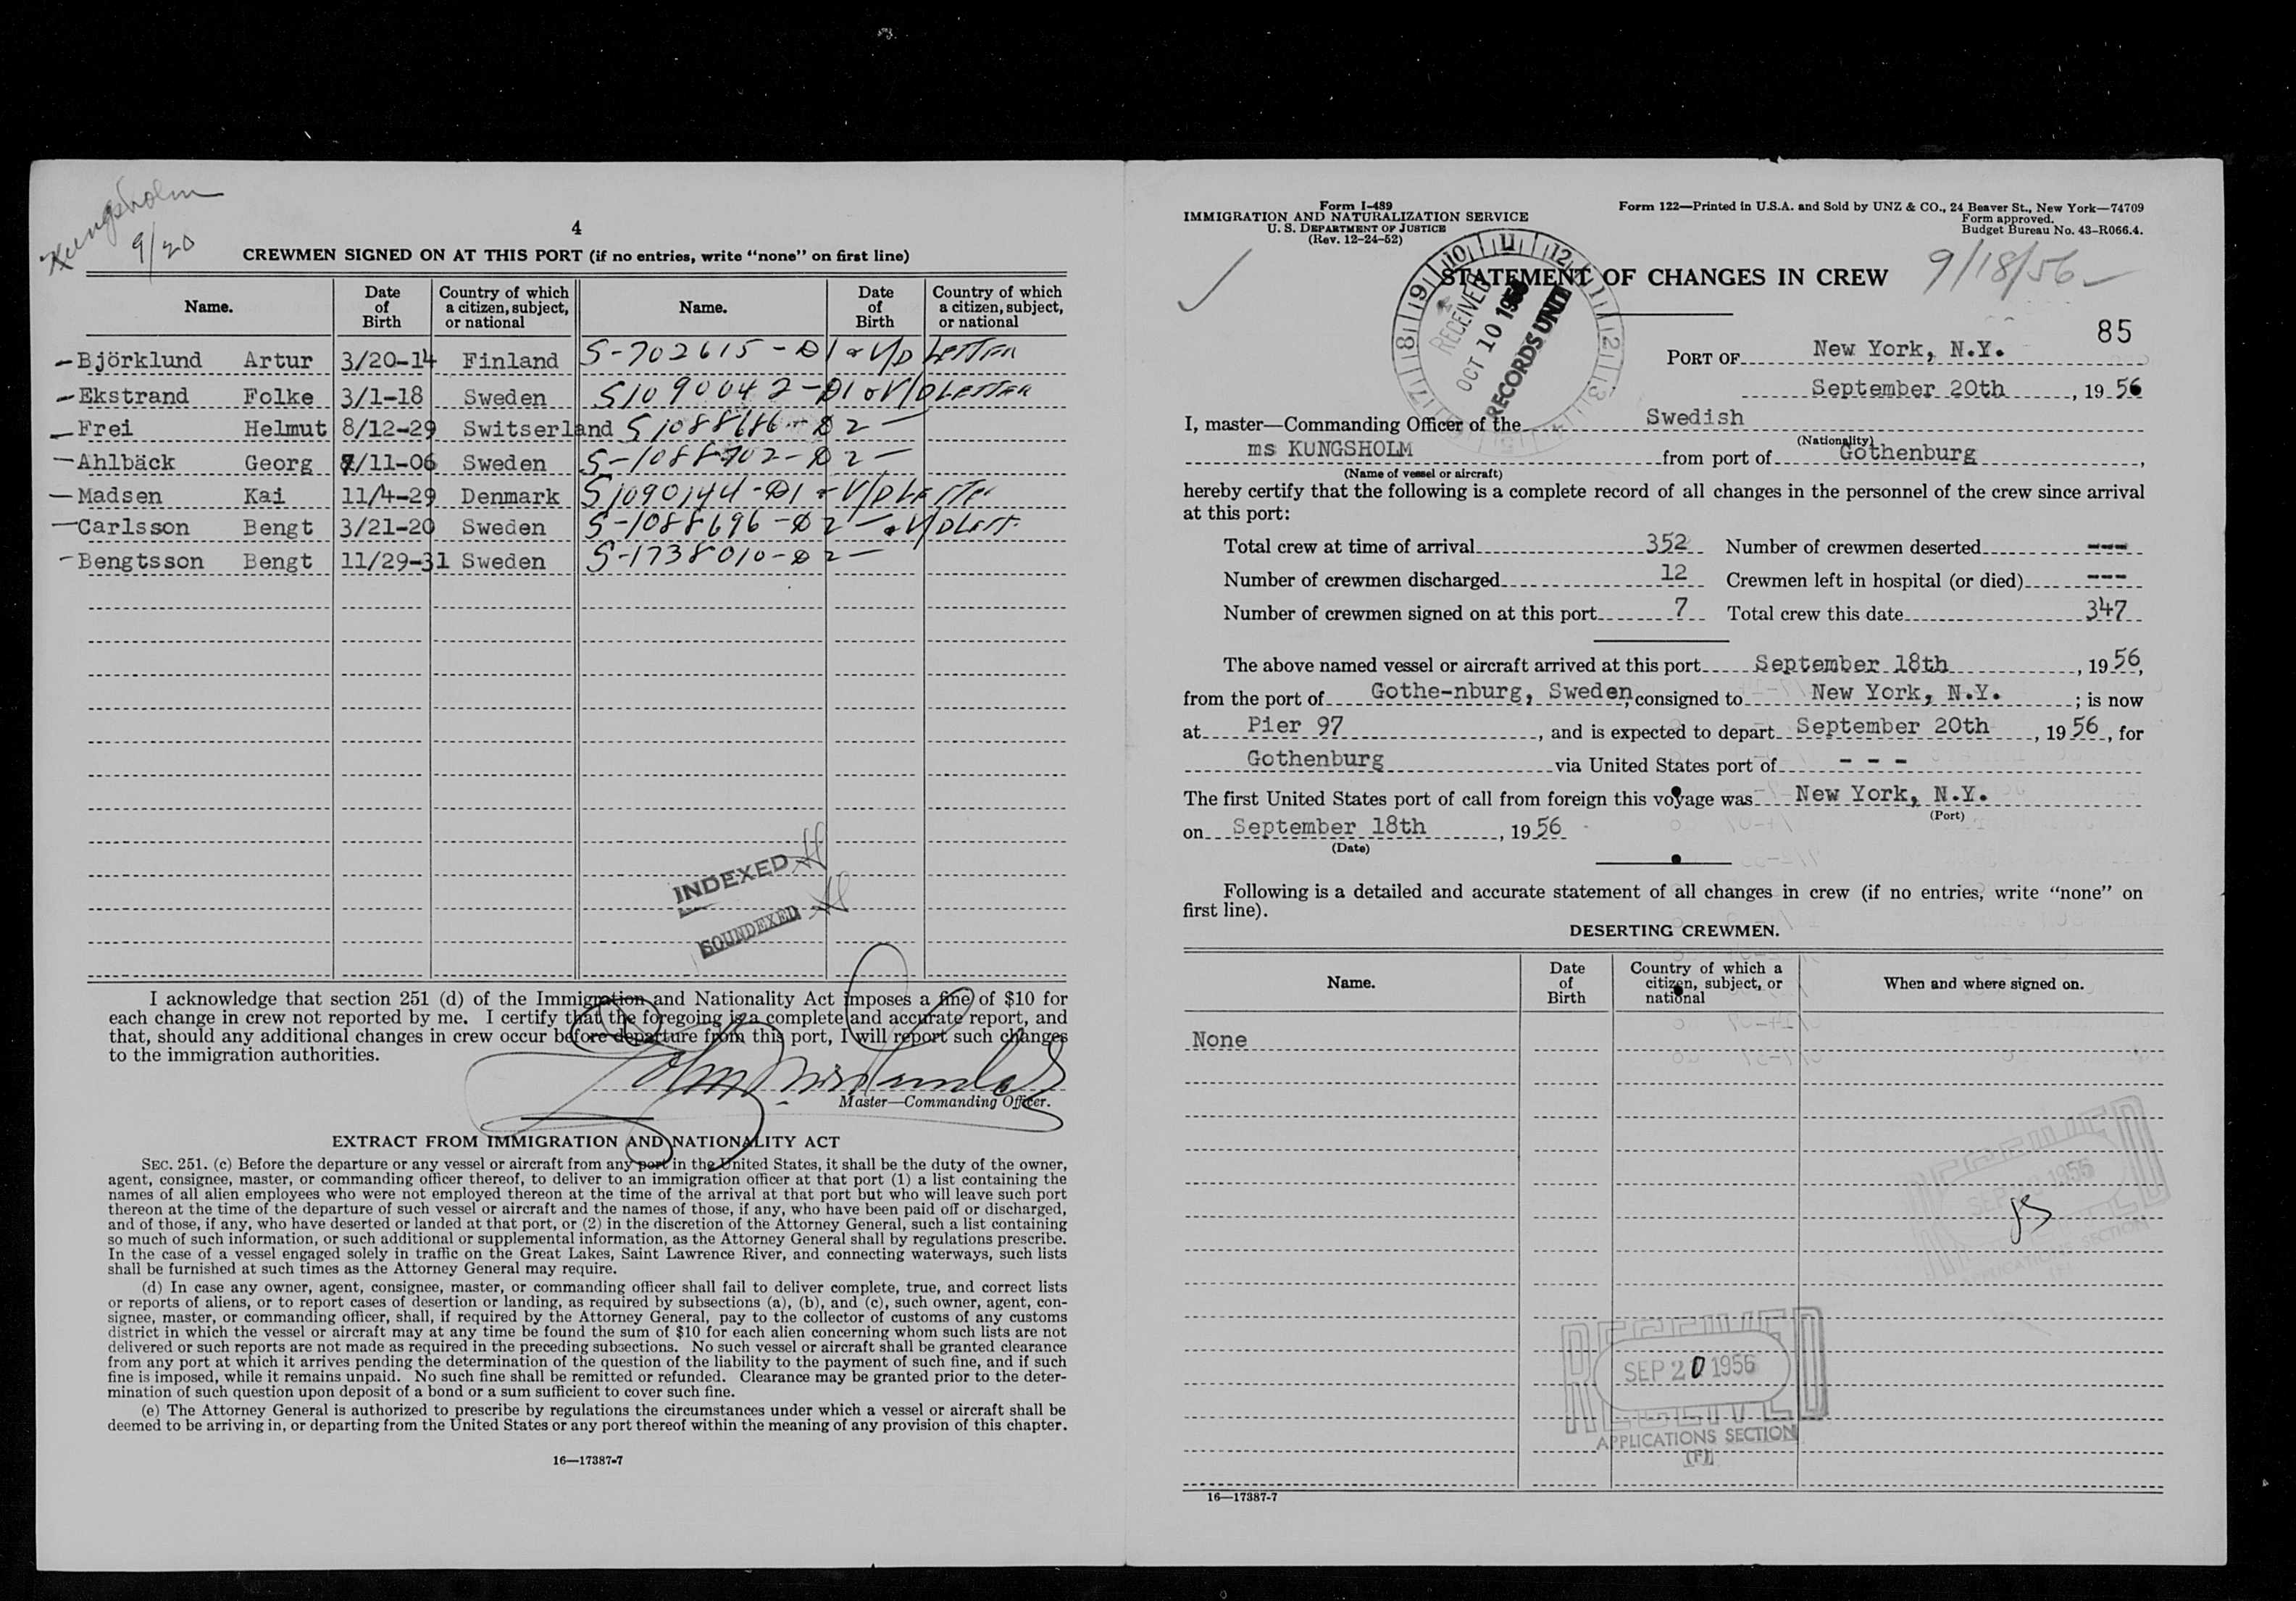 Kungsholm
9/20
4
CREWMEN SIGNED ON AT THIS PORT (if no entries, write “none” on first line)
Name. Date of Birth Country of which a citizen, subject, or national Name. Date of Birth Country of which a citizen, subject, or national
—Björklund Artur 3/20-14 Finland S-702615-D1 V/D LETTER
—Ekstrand Folke 3/1-18 Sweden S1090042-D1 V/D LETTER
—Frei Helmut 8/12-29 Switserland S1088686-D2—
—Ahlbäck Georg 7/11-06 Sweden S-1088702-D2—
—Madsen Kai 11/4-29 Denmark S1090144-D1 V/D
—Carlsson Bengt 3/21-20 Sweden S-1088696-D2—
-Bengtsson Bengt 11/29-31 Sweden S-1738010-D2—
INDEXED
SOUNDEXED
I acknowledge that section 251 (d) of the Immigration and Nationality Act imposes a fine of $10 for
each change in crew not reported by me. I certify that the foregoing is a complete and accurate report, and
that, should any additional changes in crew occur before departure from this port, I will report such changes
to the immigration authorities.
Master—Commanding Officer.
EXTRACT FROM IMMIGRATION AND NATIONALITY ACT
SEC. 251. (c) Before the departure or any vessel or aircraft from any port in the United States, it shall be the duty of the owner,
agent, consignee, master, or commanding officer thereof, to deliver to an immigration officer at that port (1) a list containing the
names of all alien employees who were not employed thereon at the time of the arrival at that port but who will leave such port
thereon at the time of the departure of such vessel or aircraft and the names of those, if any, who have been paid off or discharged,
and of those, if any, who have deserted or landed at that port, or (2) in the discretion of the Attorney General, such a list containing
so much of such information, or such additional or supplemental information, as the Attorney General shall by regulations prescribe.
In the case of a vessel engaged solely in traffic on the Great Lakes, Saint Lawrence River, and connecting waterways, such lists
shall be furnished at such times as the Attorney General may require.
(d) In case any owner, agent, consignee, master, or commanding officer shall fail to deliver complete, true, and correct lists
or reports of aliens, or to report cases of desertion or landing, as required by subsections (a), (b), and (c), such owner, agent, con-
signee, master, or commanding officer, shall, if required by the Attorney General, pay to the collector of customs of any customs
district in which the vessel or aircraft may at any time be found the sum of $10 for each alien concerning whom such lists are not
delivered or such reports are not made as required in the preceding subsections. No such vessel or aircraft shall be granted clearance
from any port at which it arrives pending the determination of the question of the liability to the payment of such fine, and if such
fine is imposed, while it remains unpaid. No such fine shall be remitted or refunded. Clearance may be granted prior to the deter-
mination of such question upon deposit of a bond or a sum sufficient to cover such fine.
(e) The Attorney General is authorized to prescribe by regulations the circumstances under which a vessel or aircraft shall be
deemed to be arriving in, or departing from the United States or any port thereof within the meaning of any provision of this chapter.
16—17387-7
Form I-489
IMMIGRATION AND NATURALIZATION SERVICE
U. S. DEPARTMENT OF JUSTICE
(Rev. 12-24-52)
Form 122—Printed in U.S.A. and Sold by UNZ & CO., 24 Beaver St., New York—74709
Form approved.
Budget Bureau No. 43-R066.4.
STATEMENT OF CHANGES IN CREW
9/18/56
RECEIVED
OCT 10 1956
RECORDS UNIT
85
PORT OF New York, N.Y.
September 20th, 1956
I, master—Commanding Officer of the Swedish
(Nationality)
ms KUNGSHOLM from port of Gothenburg,
(Name of vessel or aircraft)
hereby certify that the following is a complete record of all changes in the personnel of the crew since arrival
at this port:
Total crew at time of arrival 352 Number of crewmen deserted ---
Number of crewmen discharged 12 Crewmen left in hospital (or died) ---
Number of crewmen signed on at this port 7 Total crew this date 347
The above named vessel or aircraft arrived at this port September 18th, 1956,
from the port of Gothe-nburg, Sweden, consigned to New York, N.Y.; is now
at Pier 97, and is expected to depart September 20th, 1956, for
Gothenburg via United States port of - - -
The first United States port of call from foreign this voyage was New York, N.Y.
(Port)
on September 18th, 1956
(Date)
Following is a detailed and accurate statement of all changes in crew (if no entries, write “none” on
first line).
DESERTING CREWMEN.
Name. Date of Birth Country of which a citizen, subject, or national When and where signed on.
None
RECEIVED
SEP 20 1956
APPLICATIONS SECTION
(F)
16—17387-7